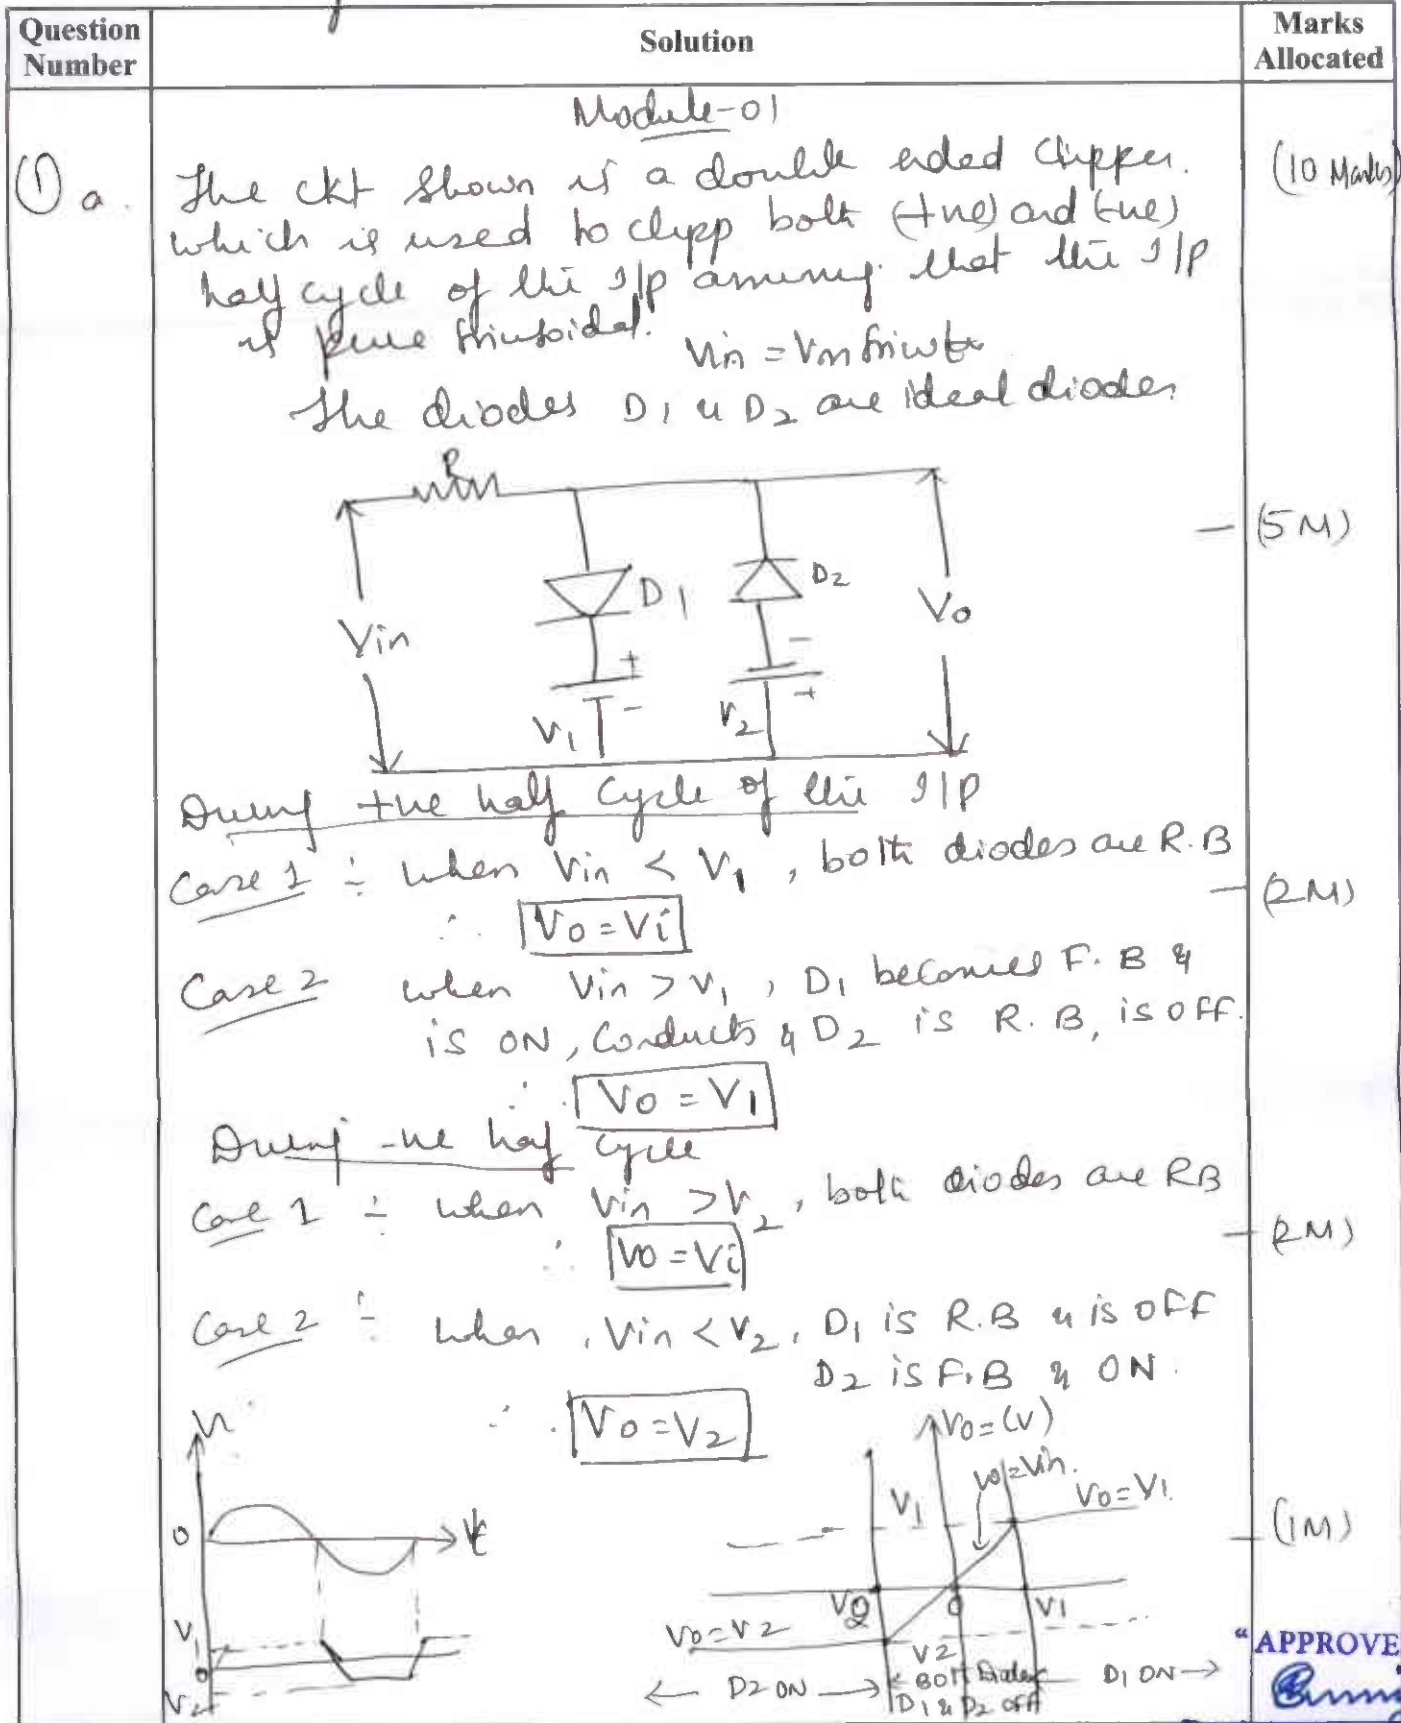 Question Number
Solution
Marks Allocated
Module-01
① a.
(10 Marks)
The ckt shown is a double ended clipper.
which is used to clipp both (+ve) and (-ve)
half cycle of the I/P assuming that the I/P
is pure sinusoidal.
Vin = Vm sinwt
The diodes D1 & D2 are ideal diodes
R
D1
D2
Vin
Vo
+
-
-
+
V1
V2
- (5M)
During +ve half cycle of the I/P
Case 1 :- when Vin < V1, both diodes are R.B
- (2M)
∴ Vo = Vi
Case 2 when Vin > V1, D1 becomes F.B &
is ON, Conducts & D2 is R.B, is OFF.
∴ Vo = V1
During -ve half cycle
Case 1 :- when Vin > V2, both diodes are RB
- (2M)
∴ Vo = Vi
Case 2 :- when, Vin < V2, D1 is R.B & is OFF
D2 is F.B & ON.
∴ Vo = V2
0
t
V1
0
V2
Vo=(V)
Vo=Vin.
V1
Vo=V1
V2
0
V1
Vo=V2
V2
← D2 ON →
← Both Diodes
D1 & D2 OFF
D1 ON →
- (1M)
"APPROVE